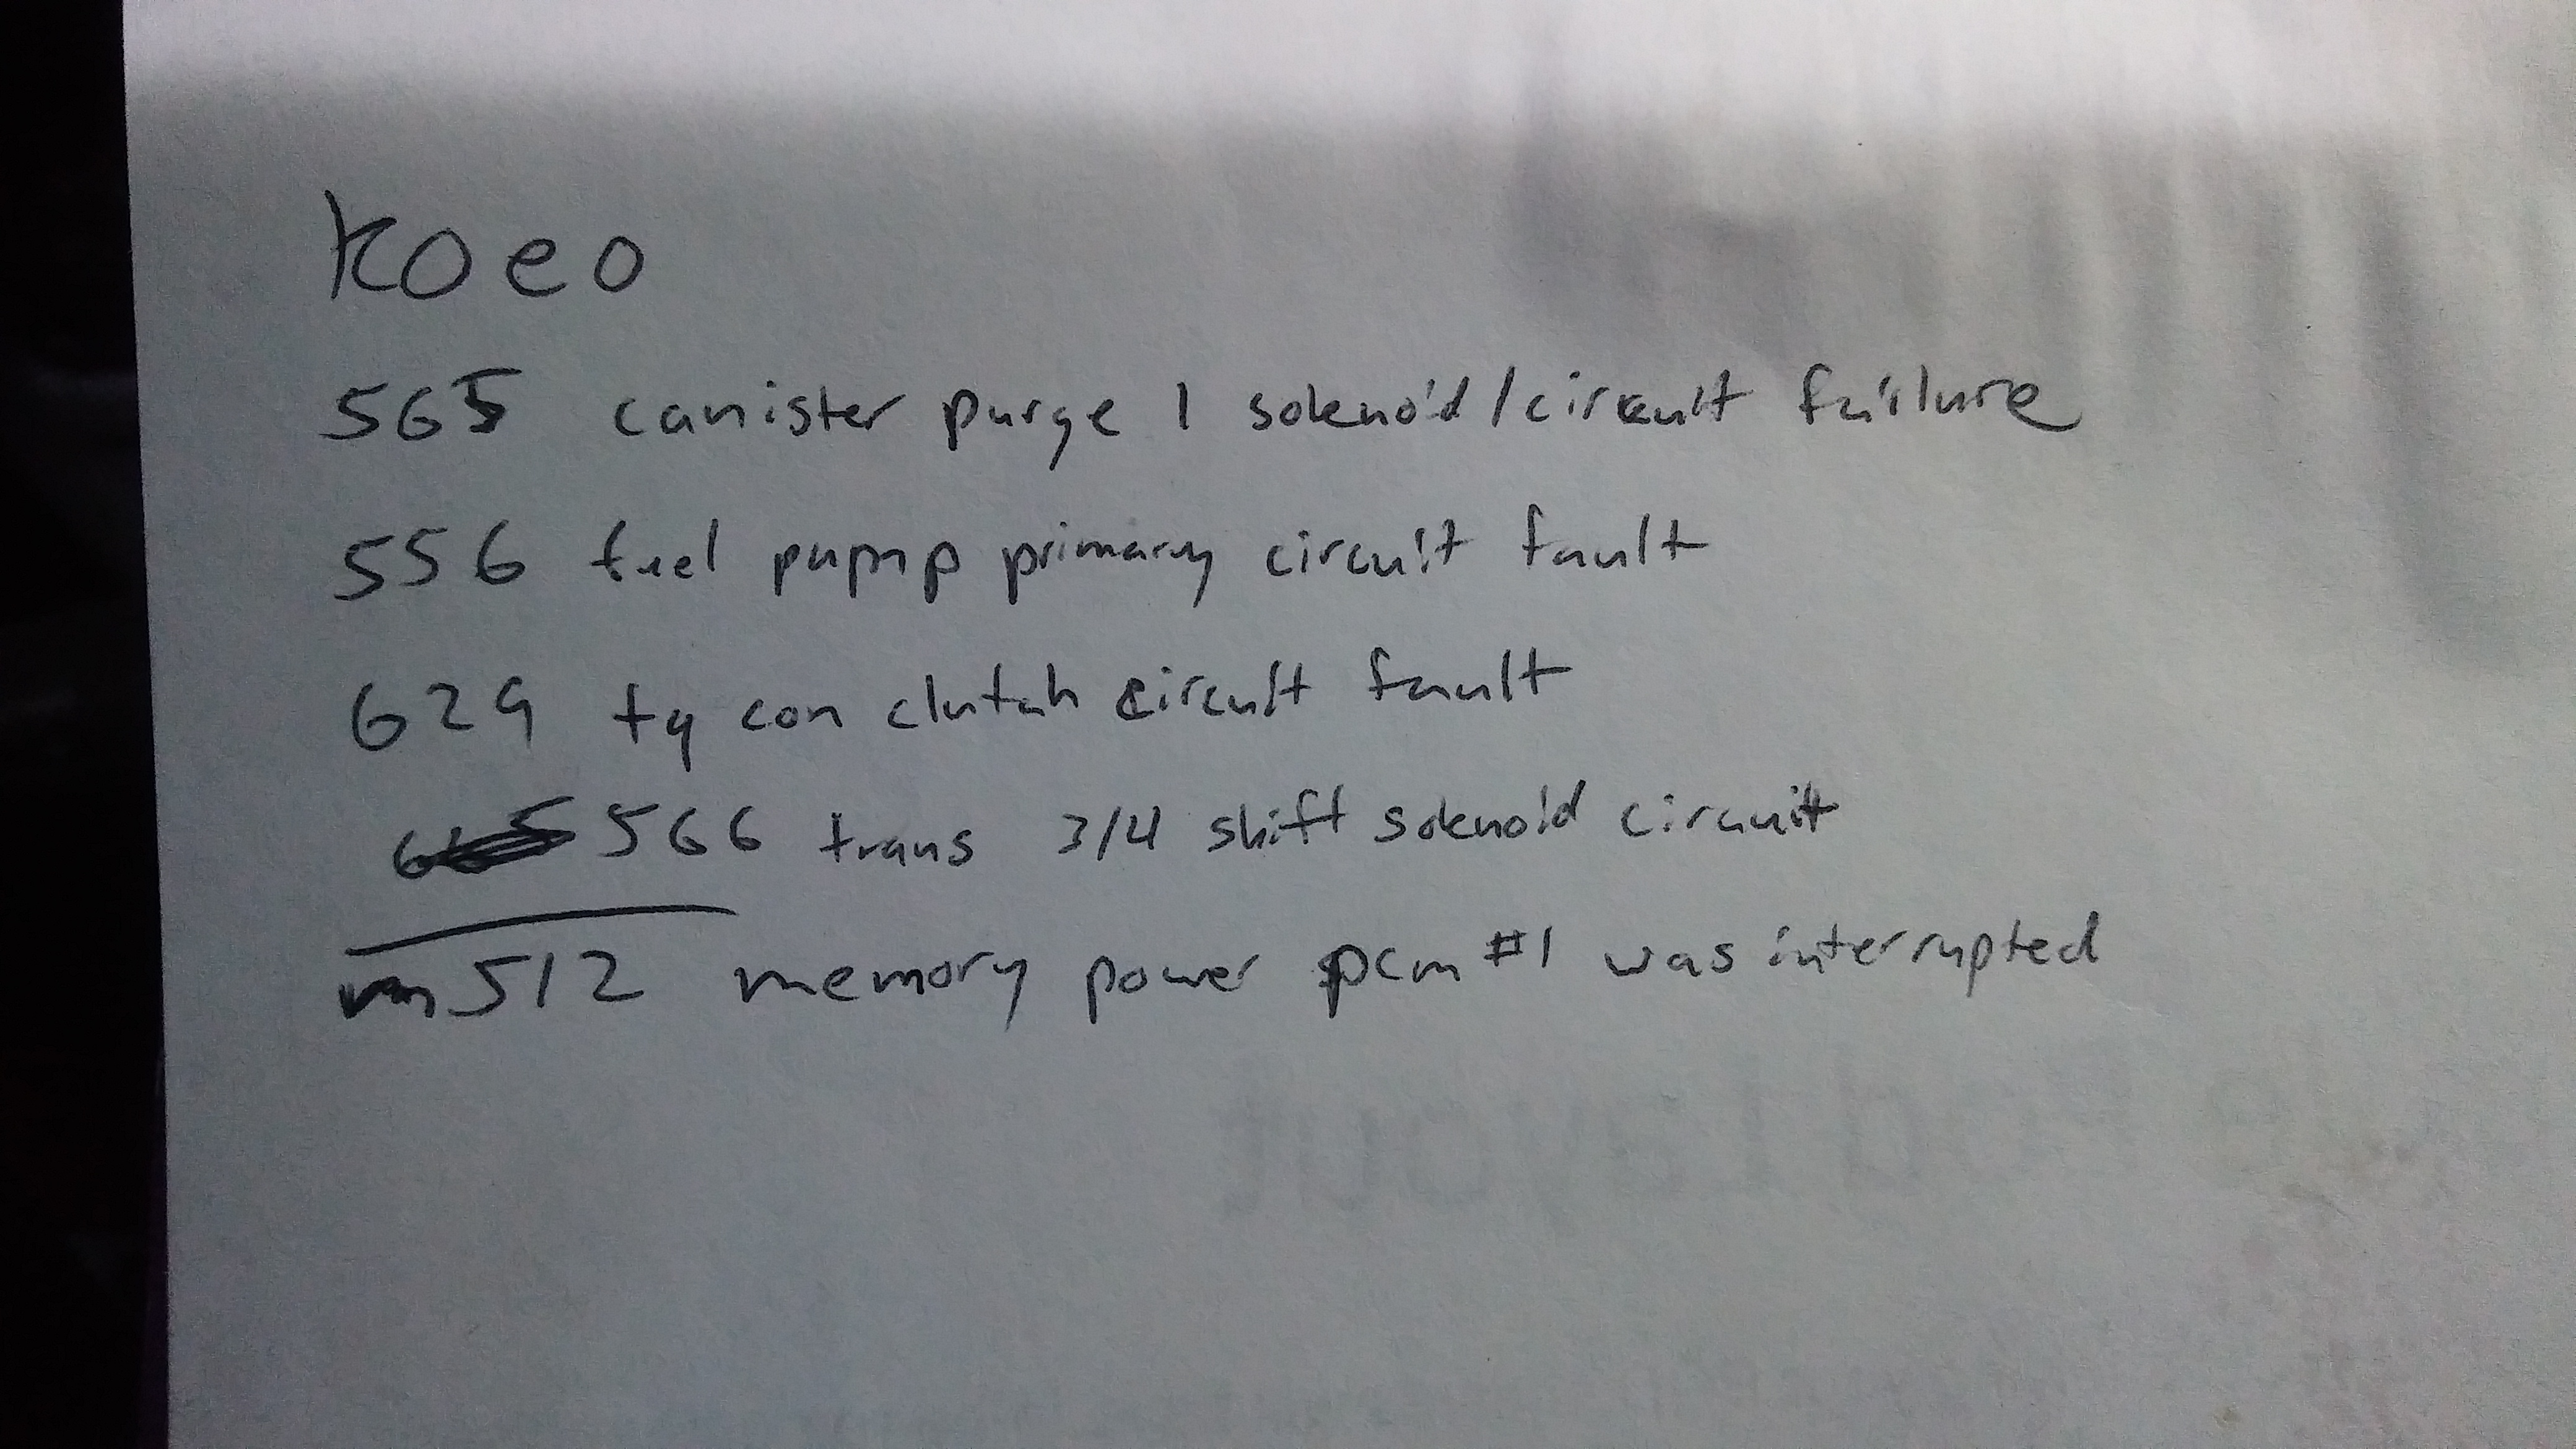 KOEO
565 canister purge 1 solenoid/circuit failure
556 fuel pump primary circuit fault
629 tq con clutch circuit fault
566 trans 3/4 shift solenoid circuit
m 512 memory power pcm #1 was interrupted